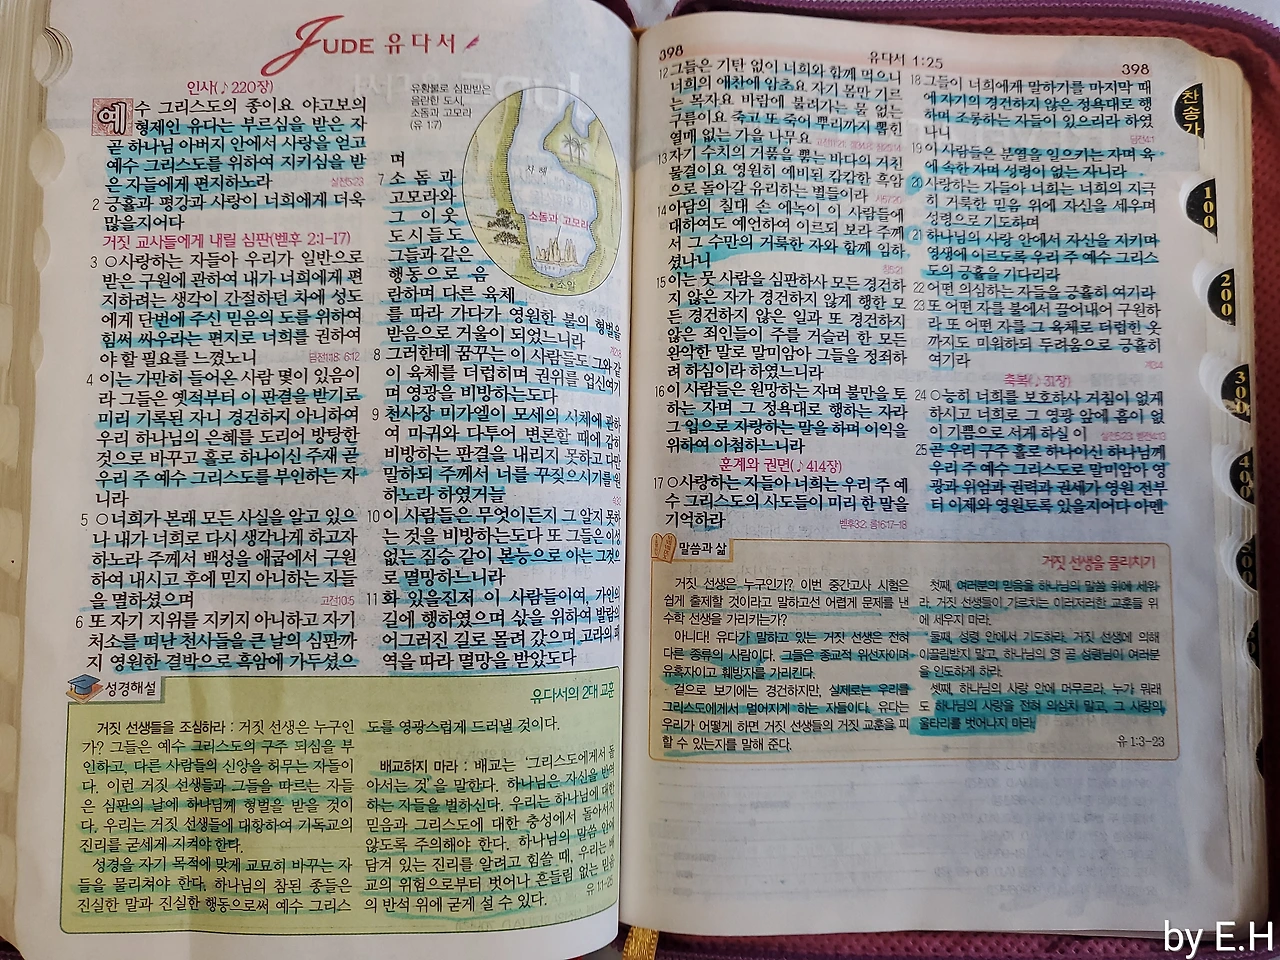 JUDE 유다서
인사(♪220장)
예수 그리스도의 종이요 야고보의
형제인 유다는 부르심을 받은 자
곧 하나님 아버지 안에서 사랑을 얻고
예수 그리스도를 위하여 지키심을 받
은 자들에게 편지하노라 살전5:23
2 긍휼과 평강과 사랑이 너희에게 더욱
많을지어다
거짓 교사들에게 내릴 심판(벧후 2:1-17)
3 ○사랑하는 자들아 우리가 일반으로
받은 구원에 관하여 내가 너희에게 편
지하려는 생각이 간절하던 차에 성도
에게 단번에 주신 믿음의 도를 위하여
힘써 싸우라는 편지로 너희를 권하여
야 할 필요를 느꼈노니 딤전1:18 6:12
4 이는 가만히 들어온 사람 몇이 있음이
라 그들은 옛적부터 이 판결을 받기로
미리 기록된 자니 경건하지 아니하여
우리 하나님의 은혜를 도리어 방탕한
것으로 바꾸고 홀로 하나이신 주재 곧
우리 주 예수 그리스도를 부인하는 자
니라
5 ○너희가 본래 모든 사실을 알고 있으
나 내가 너희로 다시 생각나게 하고자
하노라 주께서 백성을 애굽에서 구원
하여 내시고 후에 믿지 아니하는 자들
을 멸하셨으며 고전10:5
6 또 자기 지위를 지키지 아니하고 자기
처소를 떠난 천사들을 큰 날의 심판까
지 영원한 결박으로 흑암에 가두셨으
유황불로 심판받은
음란한 도시,
소돔과 고모라
(유 1:7)
사해
소돔과 고모라
소알
며
7 소돔과
고모라와
그 이웃
도시들도
그들과 같은
행동으로 음
란하며 다른 육체
를 따라 가다가 영원한 불의 형벌을
받음으로 거울이 되었느니라
8 그러한데 꿈꾸는 이 사람들도 그와 같
이 육체를 더럽히며 권위를 업신여기
며 영광을 비방하는도다
9 천사장 미가엘이 모세의 시체에 관하
여 마귀와 다투어 변론할 때에 감히
비방하는 판결을 내리지 못하고 다만
말하되 주께서 너를 꾸짖으시기를 원
하노라 하였거늘
10 이 사람들은 무엇이든지 그 알지 못하
는 것을 비방하는도다 또 그들은 이성
없는 짐승 같이 본능으로 아는 그것으
로 멸망하느니라
11 화 있을진저 이 사람들이여, 가인의
길에 행하였으며 삯을 위하여 발람의
어그러진 길로 몰려 갔으며 고라의 패
역을 따라 멸망을 받았도다
성경해설
유다서의 2대 교훈
거짓 선생들을 조심하라 : 거짓 선생은 누구인
가? 그들은 예수 그리스도의 구주 되심을 부
인하고, 다른 사람들의 신앙을 허무는 자들이
다. 이런 거짓 선생들과 그들을 따르는 자들
은 심판의 날에 하나님께 형벌을 받을 것이
다. 우리는 거짓 선생들에 대항하여 기독교의
진리를 굳세게 지켜야 한다.
성경을 자기 목적에 맞게 교묘히 바꾸는 자
들을 물리쳐야 한다. 하나님의 참된 종들은
진실한 말과 진실한 행동으로써 예수 그리스
도를 영광스럽게 드러낼 것이다.
배교하지 마라 : 배교는 '그리스도에게서 돌
아서는 것'을 말한다. 하나님은 자신을 반역
하는 자들을 벌하신다. 우리는 하나님에 대한
믿음과 그리스도에 대한 충성에서 돌아서지
않도록 주의해야 한다. 하나님의 말씀 안에
담겨 있는 진리를 알려고 힘쓸 때, 우리는 배
교의 위험으로부터 벗어나 흔들림 없는 믿음
의 반석 위에 굳게 설 수 있다. 유 1:1-25
398 유다서 1:25 398
12 그들은 기탄 없이 너희와 함께 먹으니
너희의 애찬에 암초요 자기 몸만 기르
는 목자요 바람에 불려가는 물 없는
구름이요 죽고 또 죽어 뿌리까지 뽑힌
열매 없는 가을 나무요
13 자기 수치의 거품을 뿜는 바다의 거친
물결이요 영원히 예비된 캄캄한 흑암
으로 돌아갈 유리하는 별들이라 사57:20
14 아담의 칠대 손 에녹이 이 사람들에
대하여도 예언하여 이르되 보라 주께
서 그 수만의 거룩한 자와 함께 임하
셨나니
15 이는 뭇 사람을 심판하사 모든 경건하
지 않은 자가 경건하지 않게 행한 모
든 경건하지 않은 일과 또 경건하지
않은 죄인들이 주를 거슬러 한 모든
완악한 말로 말미암아 그들을 정죄하
려 하심이라 하였느니라
16 이 사람들은 원망하는 자며 불만을 토
하는 자며 그 정욕대로 행하는 자라
그 입으로 자랑하는 말을 하며 이익을
위하여 아첨하느니라
훈계와 권면(♪414장)
17 ○사랑하는 자들아 너희는 우리 주 예
수 그리스도의 사도들이 미리 한 말을
기억하라 벧후3:2; 롬16:17-18
18 그들이 너희에게 말하기를 마지막 때
에 자기의 경건하지 않은 정욕대로 행
하며 조롱하는 자들이 있으리라 하였
나니 딤전4:1
19 이 사람들은 분열을 일으키는 자며 육
에 속한 자며 성령이 없는 자니라
20 사랑하는 자들아 너희는 너희의 지극
히 거룩한 믿음 위에 자신을 세우며
성령으로 기도하며
21 하나님의 사랑 안에서 자신을 지키며
영생에 이르도록 우리 주 예수 그리스
도의 긍휼을 기다리라
22 어떤 의심하는 자들을 긍휼히 여기라
23 또 어떤 자를 불에서 끌어내어 구원하
라 또 어떤 자를 그 육체로 더럽힌 옷
까지도 미워하되 두려움으로 긍휼히
여기라
축복(♪31장)
24 ○능히 너희를 보호하사 거침이 없게
하시고 너희로 그 영광 앞에 흠이 없
이 기쁨으로 서게 하실 이
25 곧 우리 구주 홀로 하나이신 하나님께
우리 주 예수 그리스도로 말미암아 영
광과 위엄과 권력과 권세가 영원 전부
터 이제와 영원토록 있을지어다 아멘
말씀과 삶
거짓 선생을 물리치기
거짓 선생은 누구인가? 이번 중간고사 시험은
쉽게 출제할 것이라고 말하고선 어렵게 문제를 낸
수학 선생을 가리키는가?
아니다! 유다가 말하고 있는 거짓 선생은 전혀
다른 종류의 사람이다. 그들은 종교적 위선자이며
유혹자이고 훼방자를 가리킨다.
겉으로 보기에는 경건하지만, 실제로는 우리를
그리스도에게서 멀어지게 하는 자들이다. 유다는
우리가 어떻게 하면 거짓 선생들의 거짓 교훈을 피
할 수 있는지를 말해 준다.
첫째, 여러분의 믿음을 하나님의 말씀 위에 세워
라. 거짓 선생들이 가르치는 이러저러한 교훈들 위
에 세우지 마라.
둘째, 성령 안에서 기도하라. 거짓 선생에 의해
이끌림받지 말고, 하나님의 영 곧 성령님이 여러분
을 인도하게 하라.
셋째, 하나님의 사랑 안에 머무르라. 누가 뭐래
도 하나님의 사랑을 전혀 의심치 말고, 그 사랑의
울타리를 벗어나지 마라.
유 1:3-23
찬송가
100
200
300
400
500
by E.H